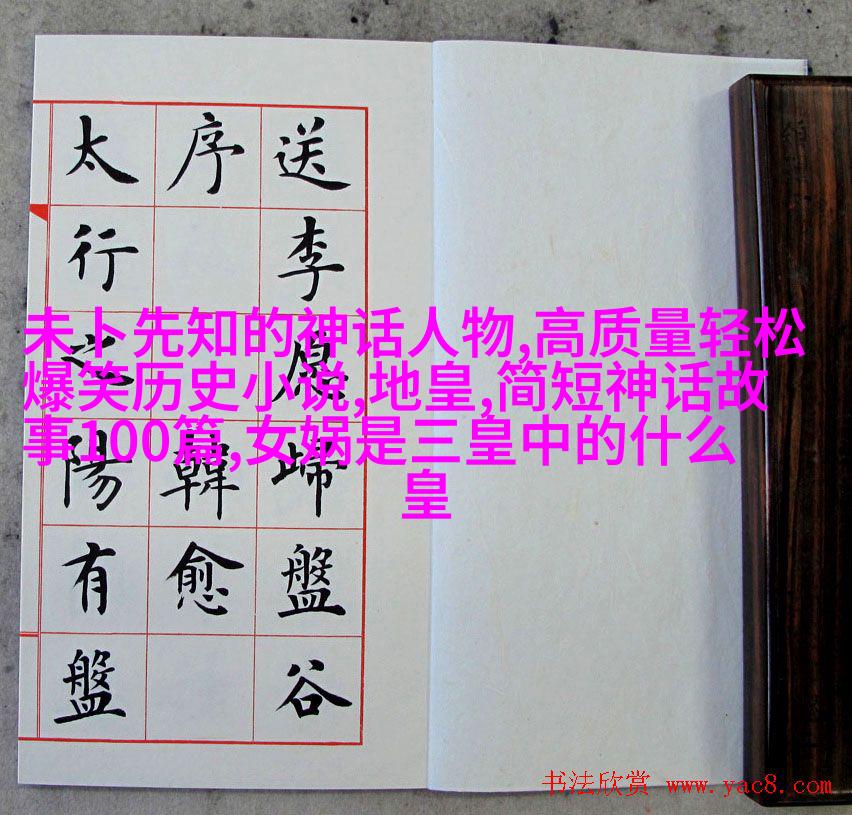 送李原歸盤谷
序 韓愈
太行之陽有盤
未卜先知的神话人物,高质量轻松
爆笑历史小说,地皇,简短神话故
事100篇,女娲是三皇中的什么
皇
书法欣赏 www.yac8.com